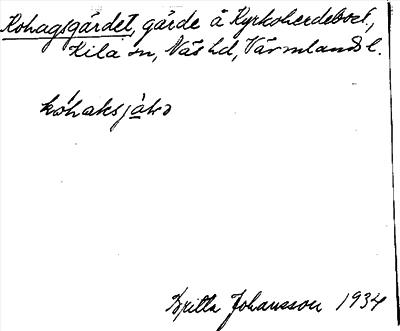 Kohagsgärdet, gärde å Kyrkoherdebost.,
Kila sn, Näs hd, Värmlands l.
kóhaksjàḷɘ
Britta Johansson 1934